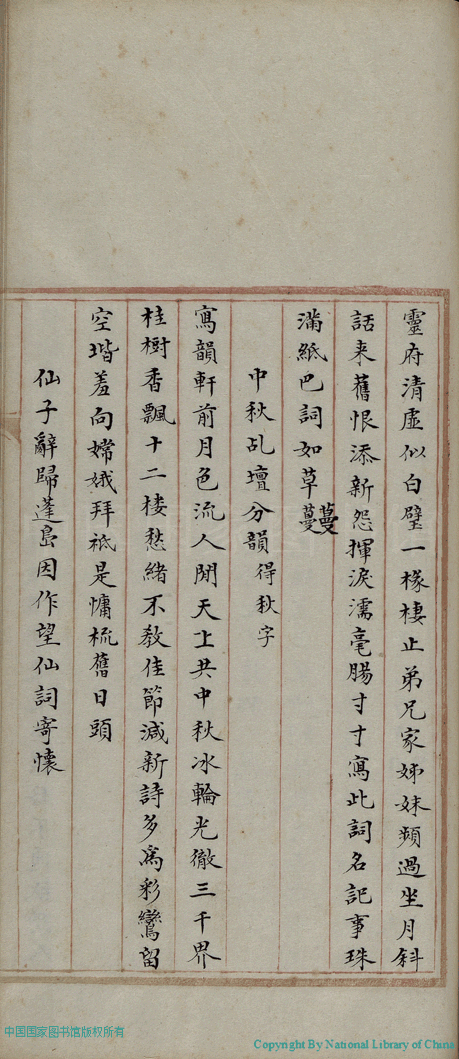 靈府清虛似白璧一椽棲止弟兄家姊妹頻過坐月斜
話来舊恨添新怨揮淚濡毫腸寸寸寫此詞名記事珠
滿紙巴詞如草蔓蔓
中秋乩壇分韻得秋字
寫韻軒前月色流人閒天上共中秋冰輪光徹三千界
桂樹香飄十二樓愁緒不教佳節減新詩多為彩鸞留
空堦羞向嫦娥拜祇是慵梳舊日頭
仙子辭歸蓬島因作望仙詞寄懷
中国国家图书馆版权所有
Copyright By National Library of China